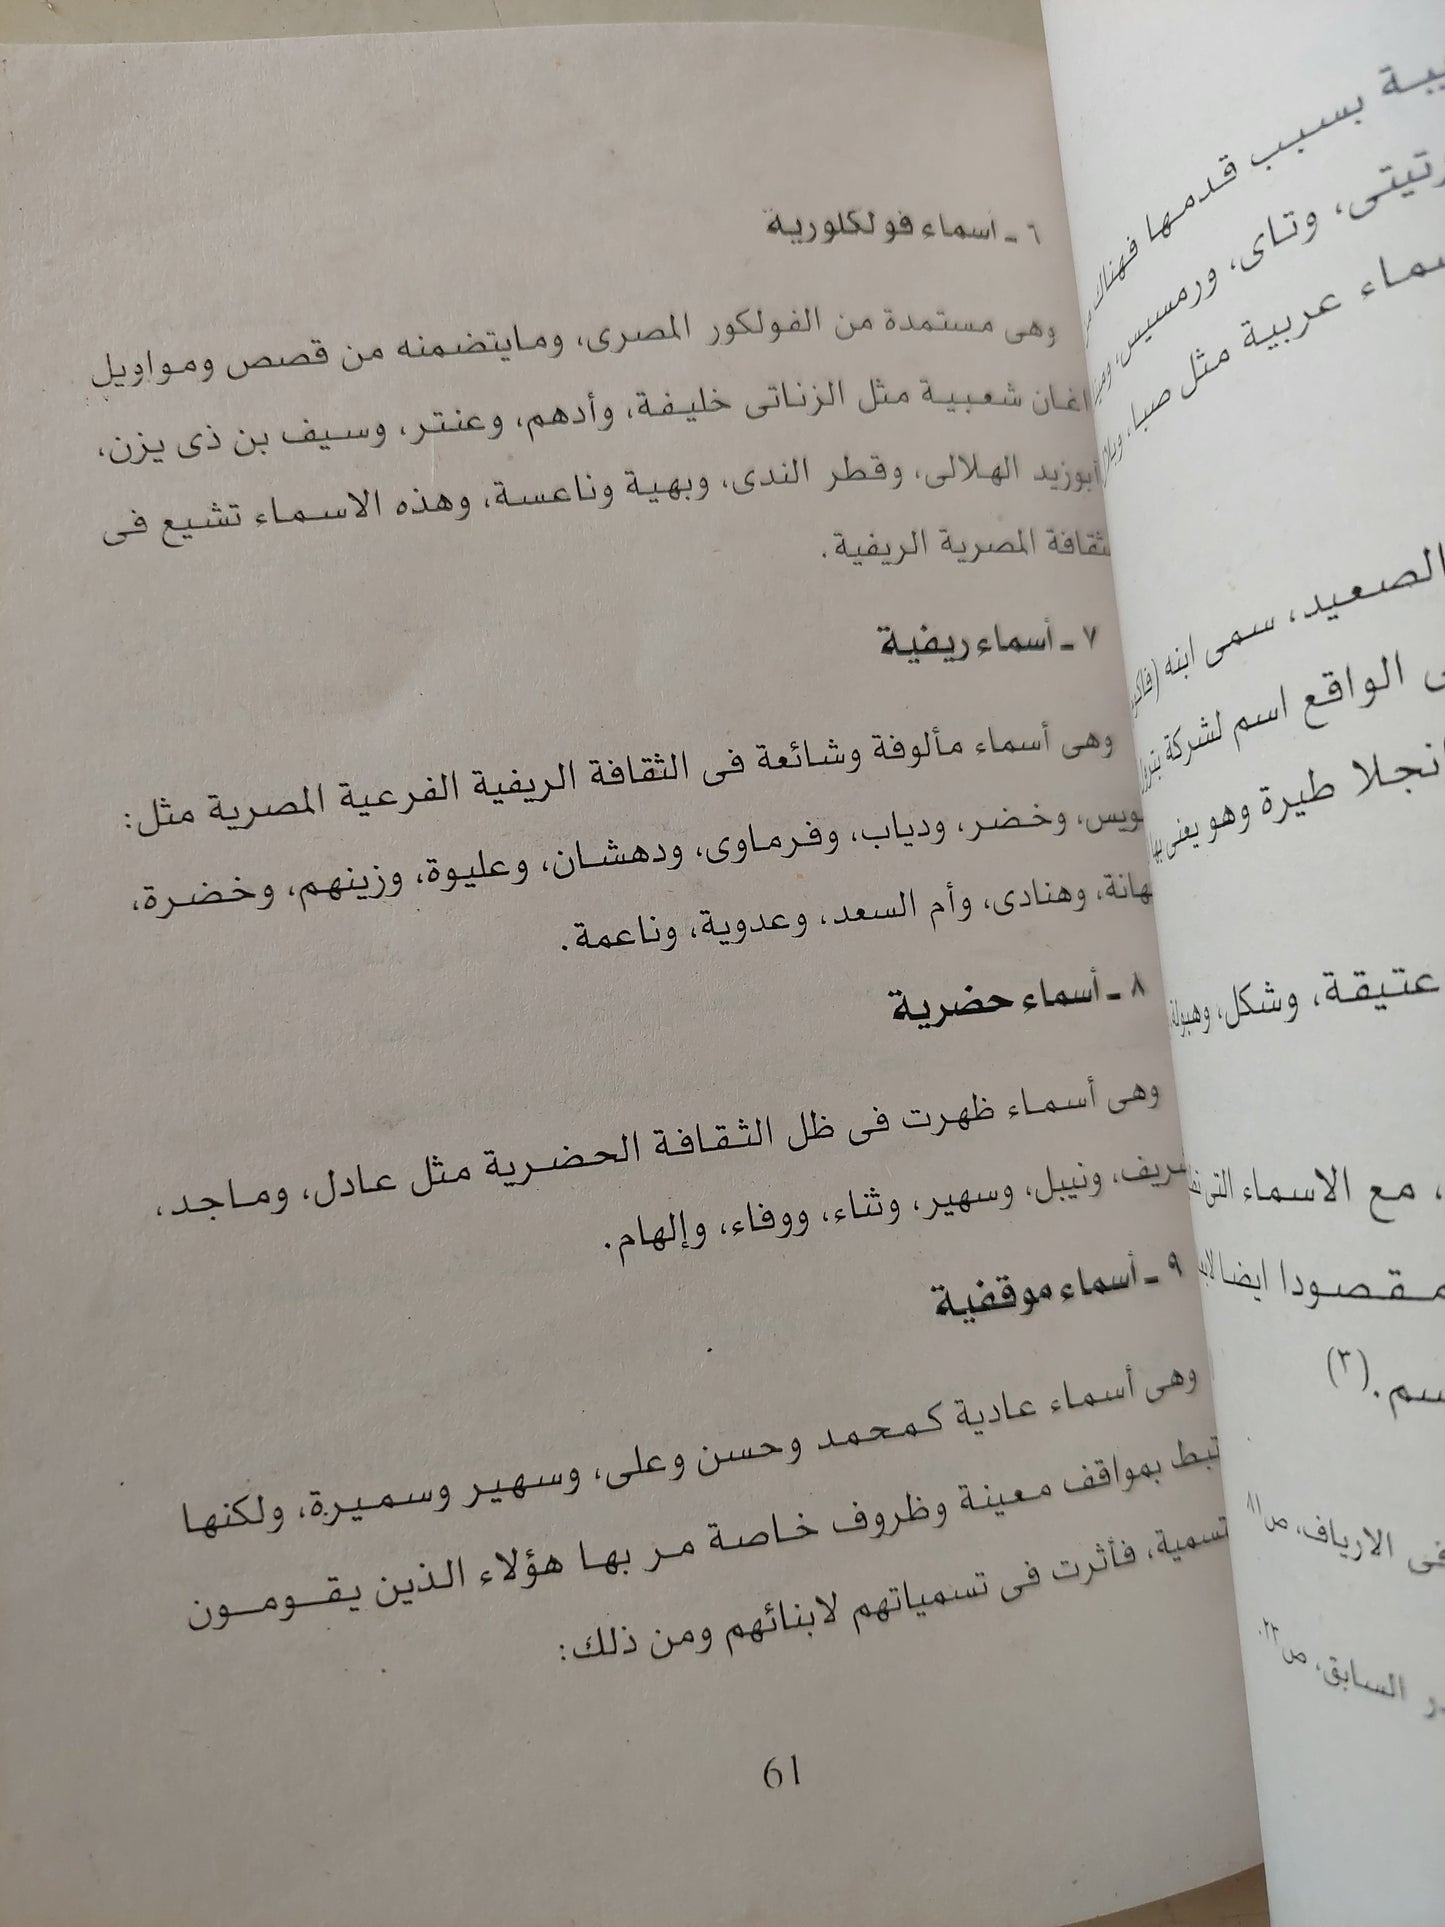 ٦ ـ أسماء فولكلورية
وهى مستمدة من الفولكور المصرى، ومايتضمنه من قصص ومواويل
اغان شعبية مثل الزناتى خليفة، وأدهم، وعنتر، وسيف بن ذى يزن،
أبوزيد الهلالى، وقطر الندى، وبهية وناعسة، وهذه الاسماء تشيع فى
ثقافة المصرية الريفية.
٧ ـ أسماء ريفية
وهى أسماء مألوفة وشائعة فى الثقافة الريفية الفرعية المصرية مثل:
ويس، وخضر، ودياب، وفرماوى، ودهشان، وعليوة، وزينهم، وخضرة،
هانة، وهنادى، وأم السعد، وعدوية، وناعمة.
٨ ـ أسماء حضرية
وهى أسماء ظهرت فى ظل الثقافة الحضرية مثل عادل، وماجد،
ريف، ونيبل، وسهير، وثناء، ووفاء، وإلهام.
٩ ـ أسماء موقفية
وهى أسماء عادية كمحمد وحسن وعلى، وسهير وسميرة، ولكنها
تبط بمواقف معينة وظروف خاصة مر بها هؤلاء الذين يقومون
تسمية، فأثرت فى تسمياتهم لابنائهم ومن ذلك:
61
يبة بسبب قدمها فهناك
رتيتى، وتاى، ورمسيس،
سماء عربية مثل صبا،
الصعيد، سمى ابنه
ى الواقع اسم لشركة
انجلا طيرة وهو يعنى بها
عتيقة، وشكل،
، مع الاسماء التى
مقصودا ايضا
سم.(٣)
فى الارياف، ص٨١
ر السابق، ص٢٢٠